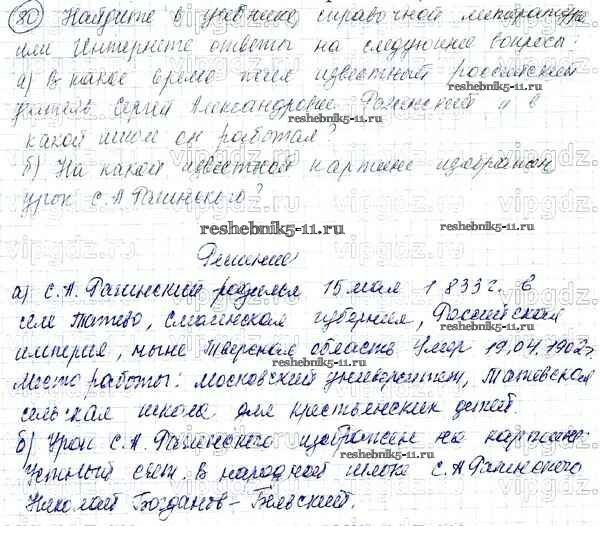 80 Найдите в учебнике, справочной литературе
или Интернете ответы на следующие вопросы:
а) В какое время жил известный российский
учитель Сергей Александрович Рачинский и в
reshebnik5-11.ru
какой школе он работал?
б) На какой известной картине изображён
урок С.А Рачинского?
reshebnik5-11.ru
Решение
а) С.А. Рачинский родился 15 мая 1833г. в
селе Татево, Смоленская губерния, Российская
империя, ныне Тверская область Умер 19.04.1902г.
Место работы: Московский университет, Татевская
сельская школа для крестьянских детей.
б) Урок С.А. Рачинского изображён на картине
Устный счёт. В народной школе С.А Рачинского
Николай Богданов-Бельский.
vipgdz.